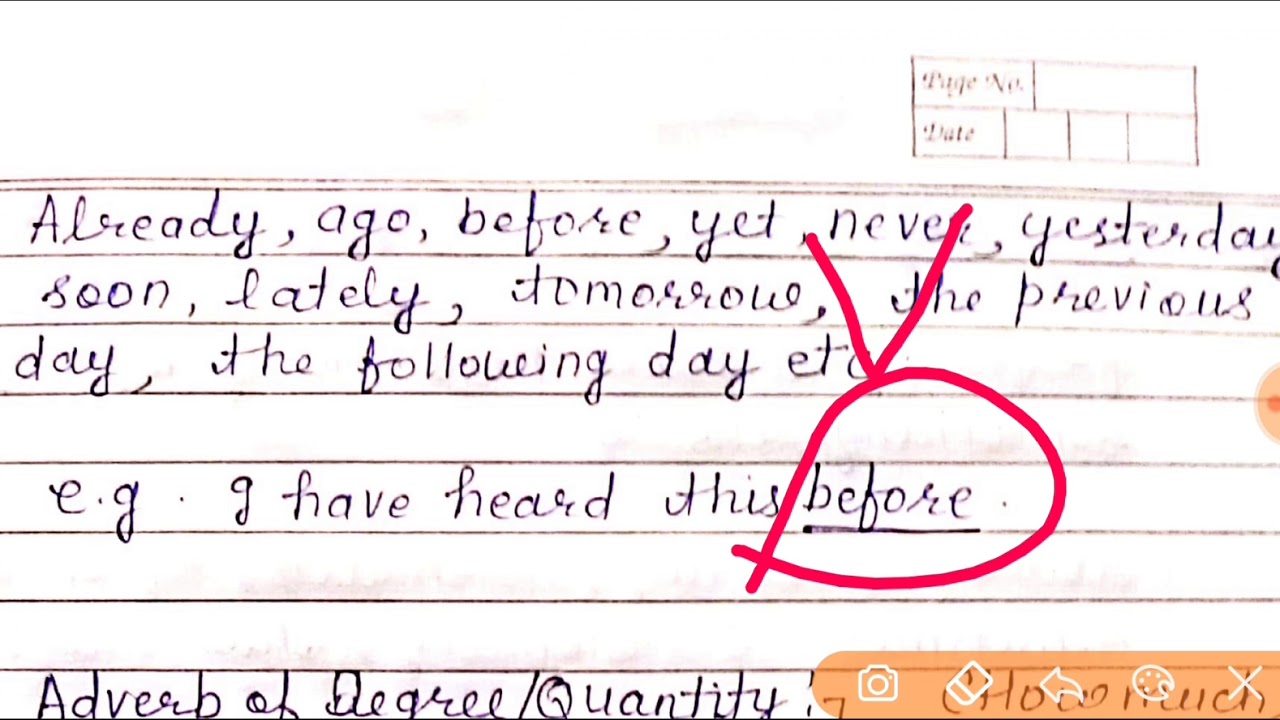 Page No.
Date
Already, ago, before, yet, never, yesterday
soon, lately, tomorrow, the previous
day, the following day etc.
e.g. I have heard this before.
Adverb of Degree/Quantity :- (How much